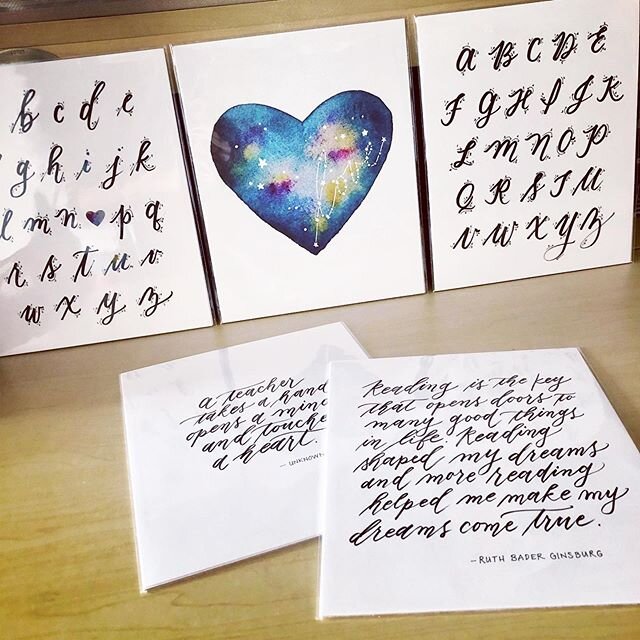 b c d e
g h i j k
l m n p q
r s t u v
w x y z
A B C D E
F G H I J K
L M N O P
Q R S T U
V W X Y Z
a teacher
takes a hand
opens a mind
and touches
a heart.
— UNKNOWN
Reading is the key
that opens doors to
many good things
in life. Reading
shaped my dreams
and more reading
helped me make my
dreams come true.
—RUTH BADER GINSBURG